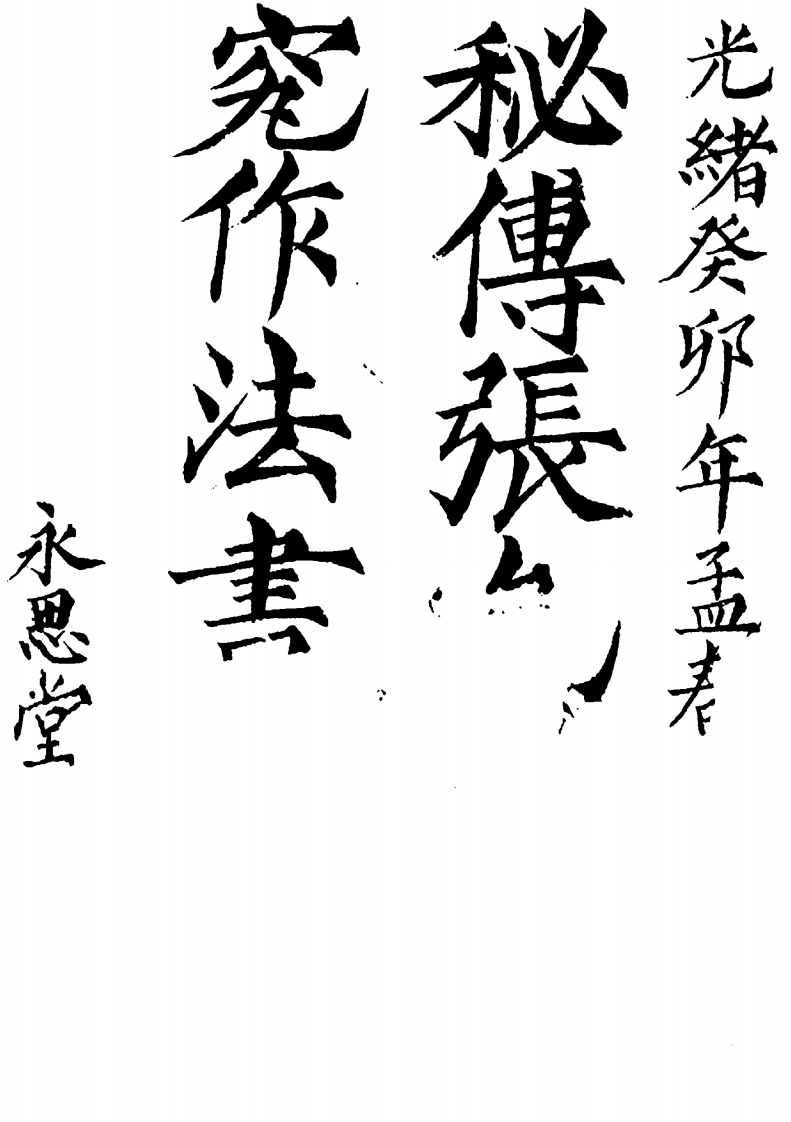 光緒癸卯年孟春
秘傳張
作法書
永思堂